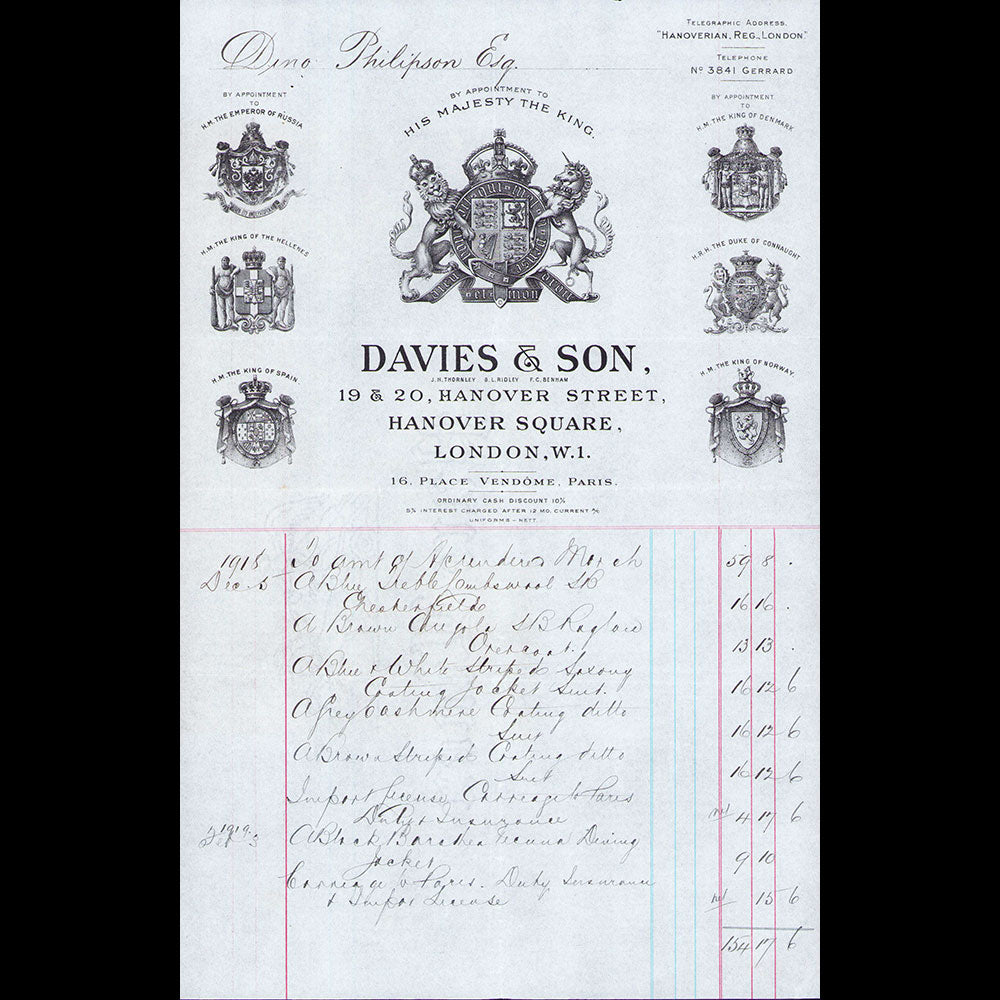 Dino Philipson Esq.
TELEGRAPHIC ADDRESS.
"HANOVERIAN, REG., LONDON"
TELEPHONE
No 3841 GERRARD
BY APPOINTMENT TO
HIS MAJESTY THE KING.
BY APPOINTMENT
TO
H.M. THE EMPEROR OF RUSSIA
BY APPOINTMENT
TO
H.M. THE KING OF DENMARK
H.M. THE KING OF THE HELLENES
H.R.H. THE DUKE OF CONNAUGHT
H.M. THE KING OF SPAIN
H.M. THE KING OF NORWAY.
DIEU et mon DROIT
DAVIES & SON,
J.H. THORNLEY D.L. RIDLEY F.C. BENHAM
19 & 20, HANOVER STREET,
HANOVER SQUARE,
LONDON, W.1.
16, PLACE VENDÔME, PARIS.
ORDINARY CASH DISCOUNT 10%
5% INTEREST CHARGED AFTER 12 MO. CURRENT A/C
UNIFORMS - NETT
To amt of Ac rendered March 59 8 .
Dec 5 A Blue Lambswool SB
Chesterfield 16 16 .
A Brown Angola SB Raglan
Overcoat. 13 13 .
A Blue & White Striped Saxony
Coating Jacket Suit. 16 12 6
A Grey Cashmere Coating ditto
Suit 16 12 6
A Brown Striped Coating ditto
Suit 16 12 6
Import License, Carriage to Paris
Duty & Insurance net 4 17 6
1919 3 A Black Barathea Dining
Jacket 9 10
Carriage to Paris. Duty Insurance
& Import License net 15 6
154 17 6